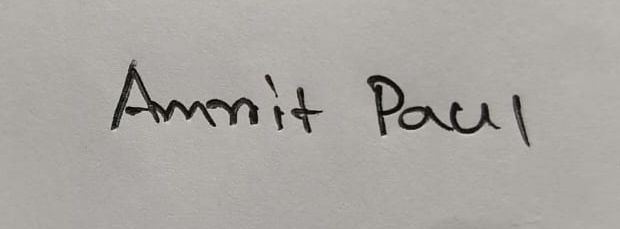 Amrit Paul